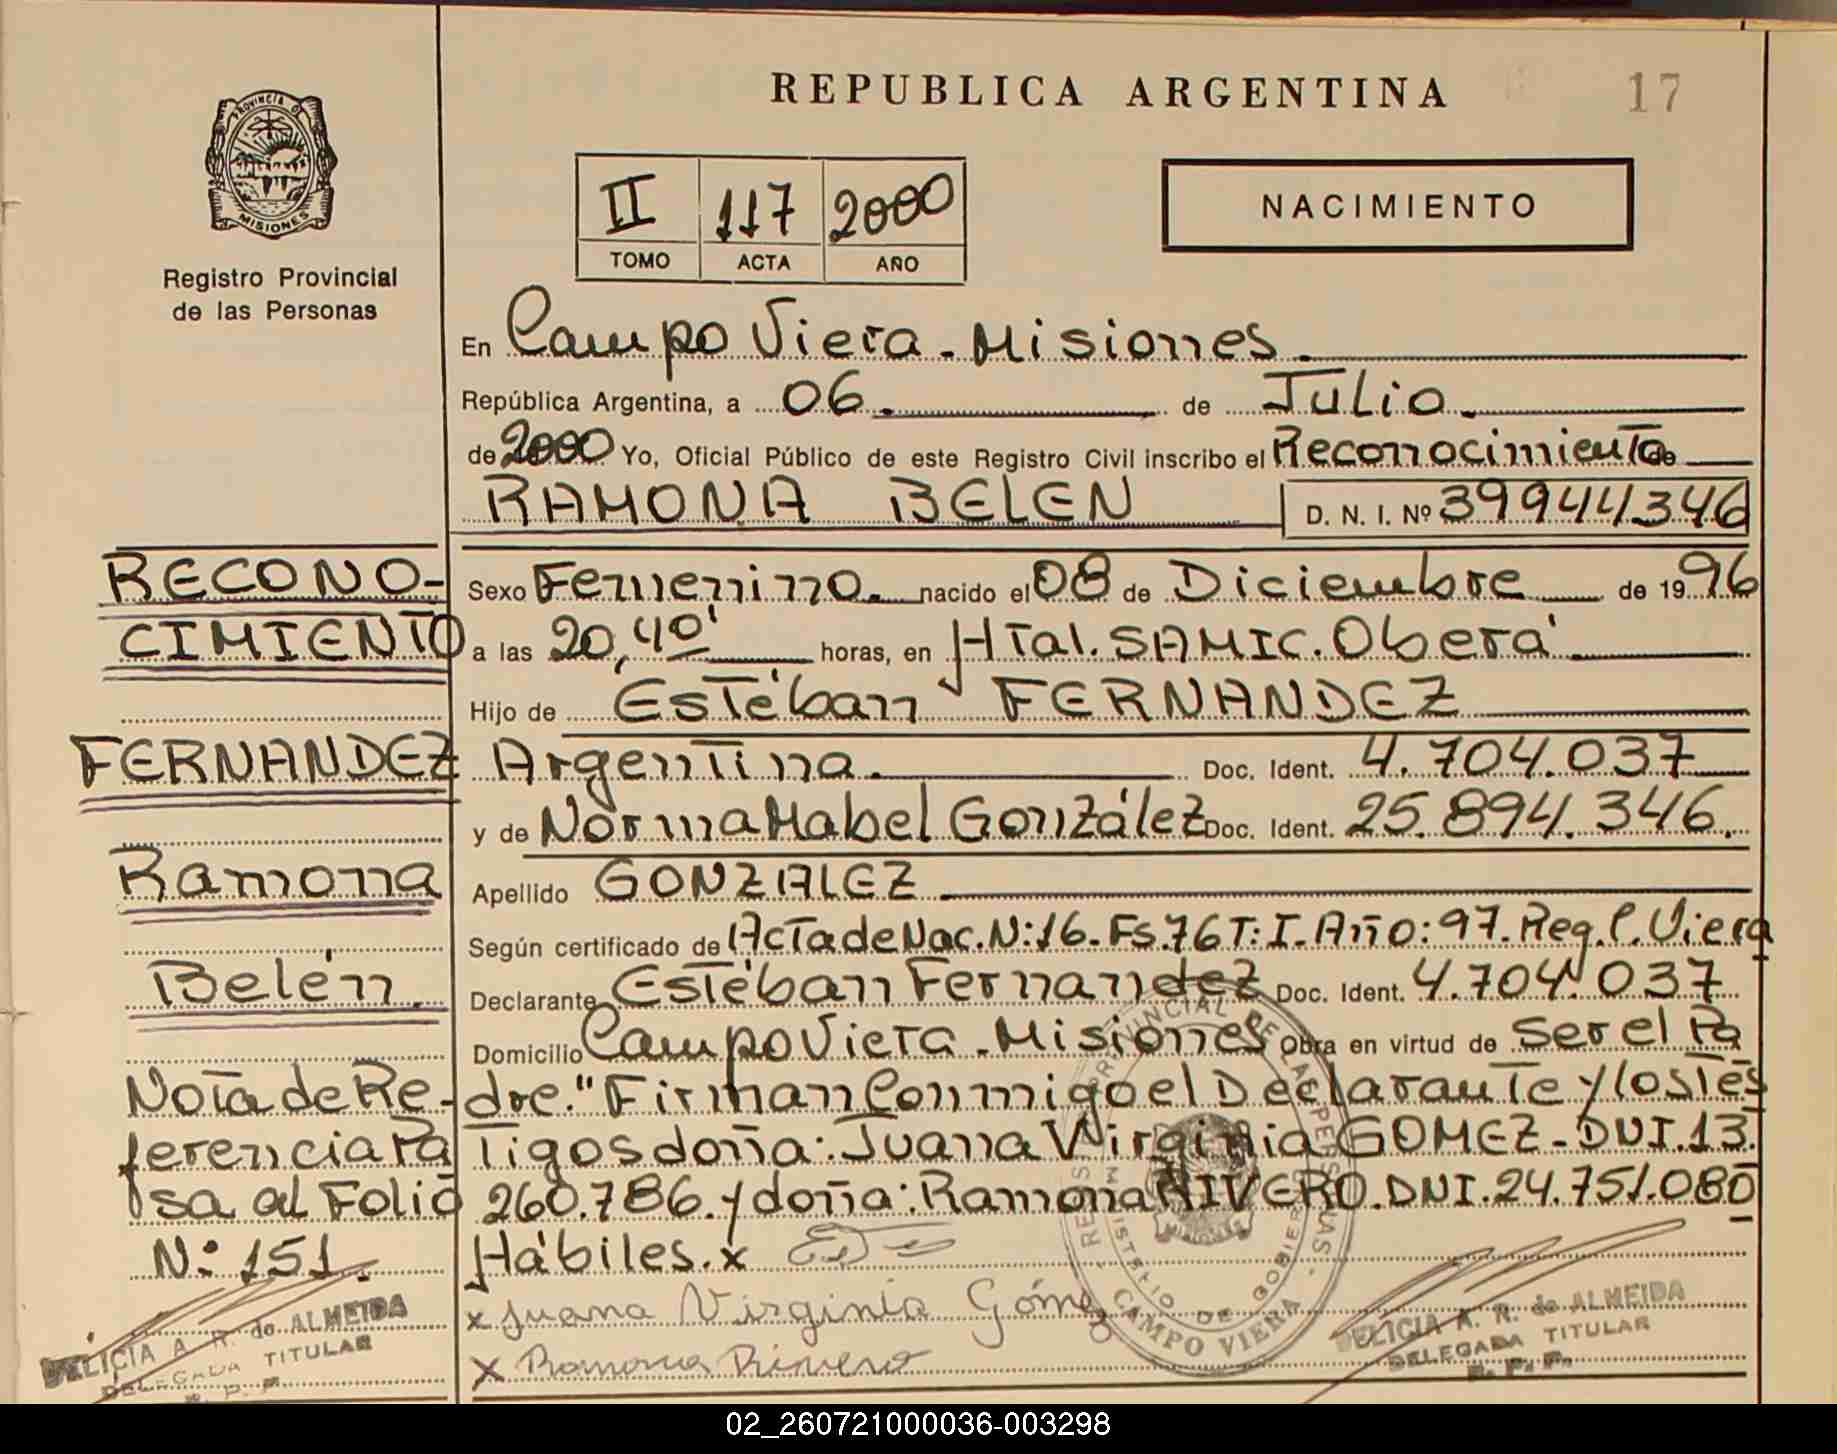 REPUBLICA ARGENTINA
17
PROVINCIA D
MISIONES
Registro Provincial
de las Personas
II 117 2000
TOMO ACTA AÑO
NACIMIENTO
En Campo Viera - Misiones.
República Argentina, a 06. de Julio.
de 2000 Yo, Oficial Público de este Registro Civil inscribo el Reconocimiento de
RAMONA BELEN D. N. I. Nº 39944346
Sexo Femenino. nacido el 08 de Diciembre de 1996
a las 20,40' horas, en Htal. SAMIC. Oberá
Hijo de Estéban FERNANDEZ
Argentina. Doc. Ident. 4.704.037
y de Norma Mabel González Doc. Ident. 25.894.346.
Apellido GONZALEZ
Según certificado de Acta de Nac. N: 16. Fs. 76 T: I. Año: 97. Reg. C. Viera
Declarante Estéban Fernandez Doc. Ident. 4.704.037
Domicilio Campo Viera - Misiones Obra en virtud de ser el Pa
dre." Firman Conmigo el Declarante y los tes
tigos doña: Juana Virginia GOMEZ - DNI. 13.
260.786. y doña: Ramona RIVERO. DNI. 24.751.080
Hábiles. x
x Juana Virginia Gómez
x Ramona Rivero
RECONO-
CIMIENTO
FERNANDEZ
Ramona
Belén.
Nota de Re-
ferencia Pa
sa al Folio
N: 151.
DELICIA A. R. de ALMEIDA
DELEGADA TITULAR
R. P. P.
PROVINCIAL DE LAS PERSONAS
MINISTERIO DE GOBIERNO
CAMPO VIERA
DELICIA A. R. de ALMEIDA
DELEGADA TITULAR
R. P. P.
02_260721000036-003298